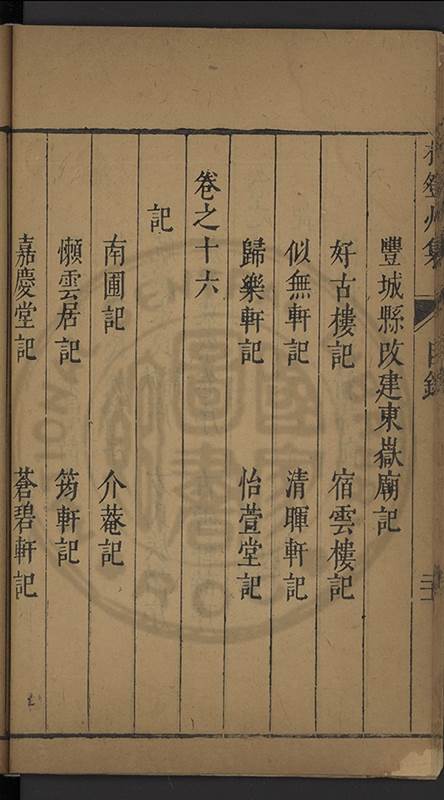 豐城縣改建東嶽廟記
好古樓記 宿雲樓記
似無軒記 清暉軒記
歸樂軒記 怡萱堂記
卷之十六
記
南圃記 介菴記
懶雲居記 筠軒記
嘉慶堂記 蒼碧軒記